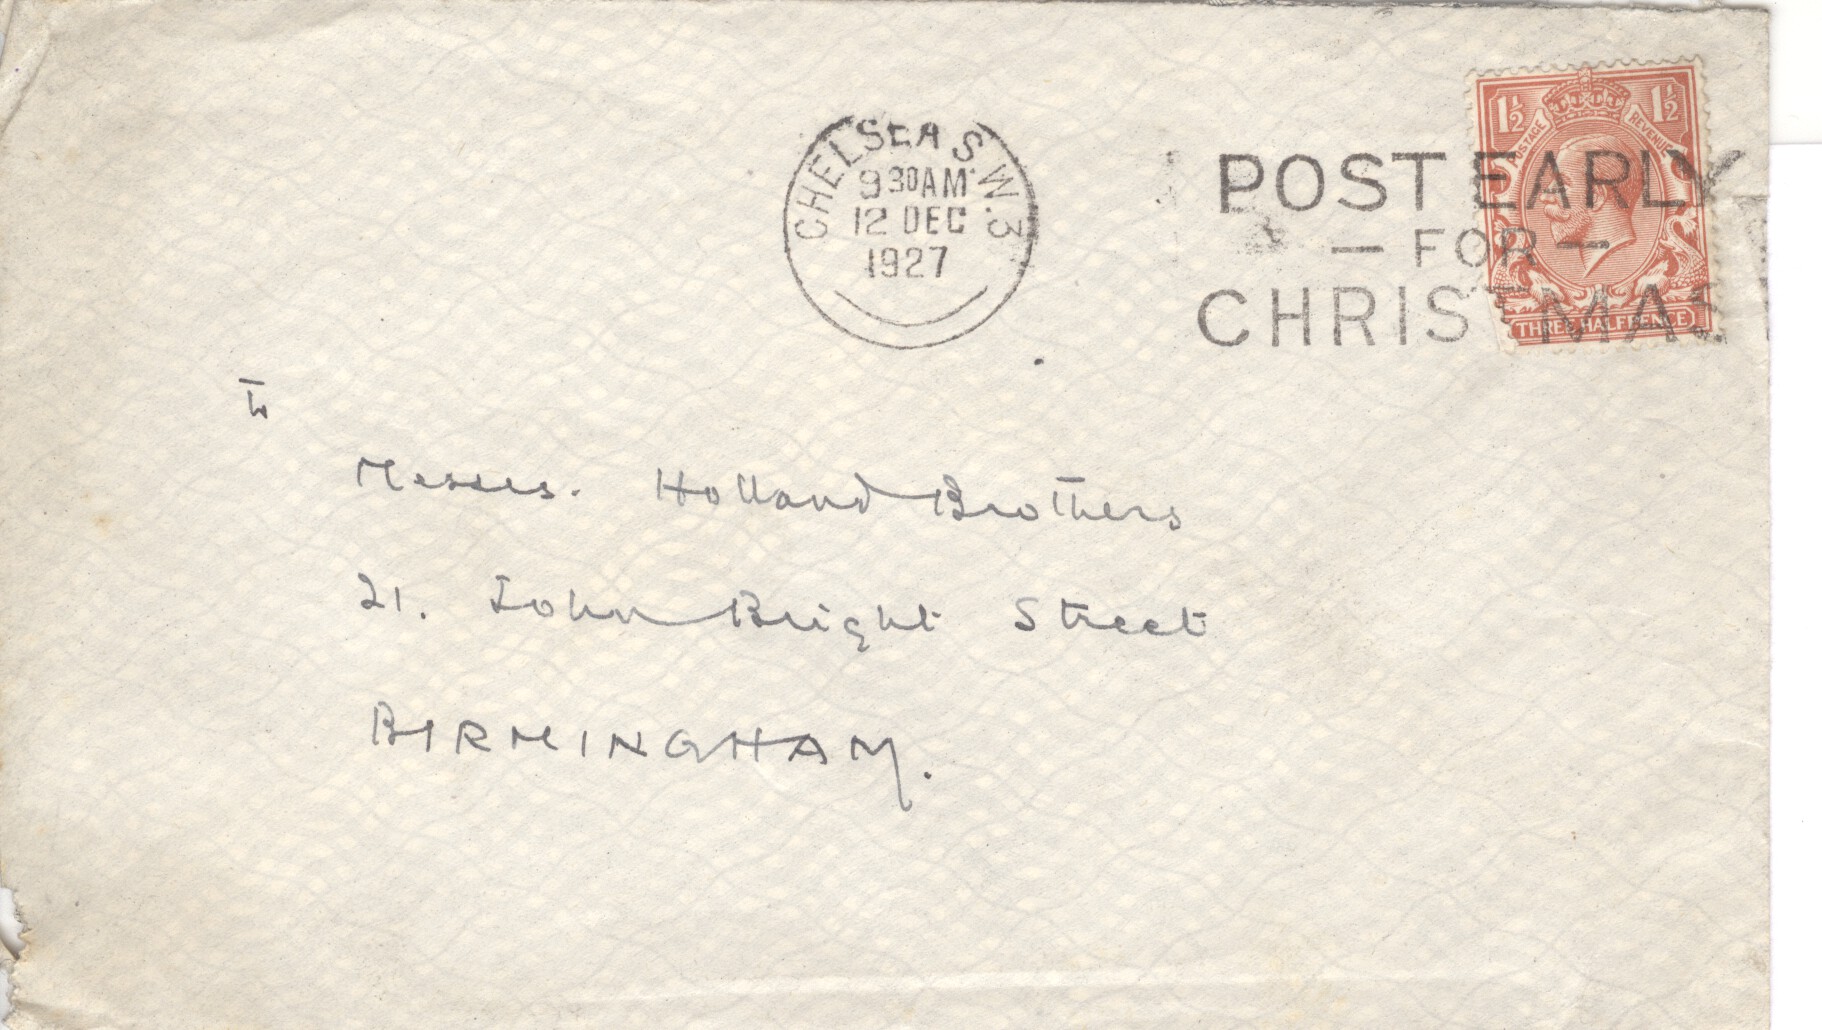 CHELSEA S.W.3
9 30AM
12 DEC
1927
POST EARLY
— FOR —
CHRISTMAS
1½ 1½
POSTAGE REVENUE
THREE HALFPENCE
To
Messrs. Holland Brothers
21. John Bright Street
BIRMINGHAM.